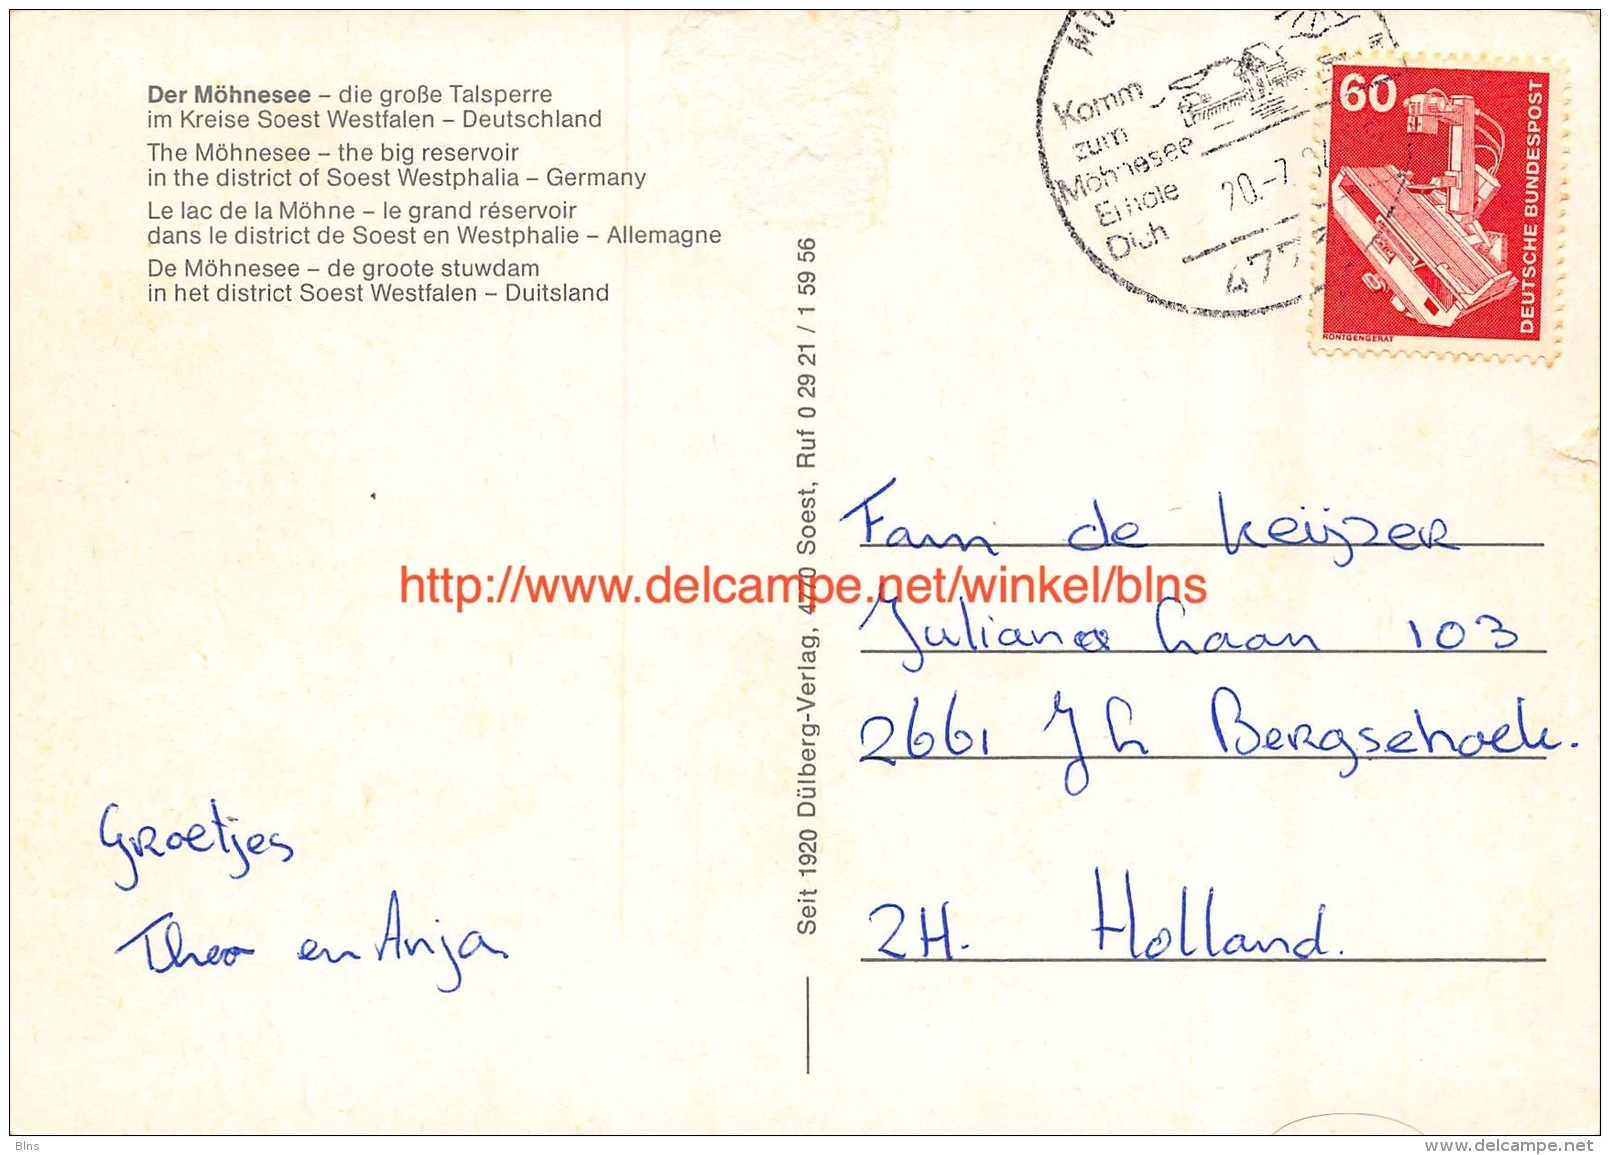 Der Möhnesee – die große Talsperre
im Kreise Soest Westfalen – Deutschland
The Möhnesee – the big reservoir
in the district of Soest Westphalia – Germany
Le lac de la Möhne – le grand réservoir
dans le district de Soest en Westphalie – Allemagne
De Möhnesee – de groote stuwdam
in het district Soest Westfalen – Duitsland
Groetjes
Theo en Anja
Seit 1920 Dülberg-Verlag, 4770 Soest, Ruf 0 29 21 / 1 59 56
Komm
zum
Möhnesee
Erhole
Dich
60
DEUTSCHE BUNDESPOST
RÖNTGENGERÄT
Fam de Keijzer
Juliana Laan 103
2661 JL Bergschoek.
ZH. Holland.
http://www.delcampe.net/winkel/blns
Blns
www.delcampe.net